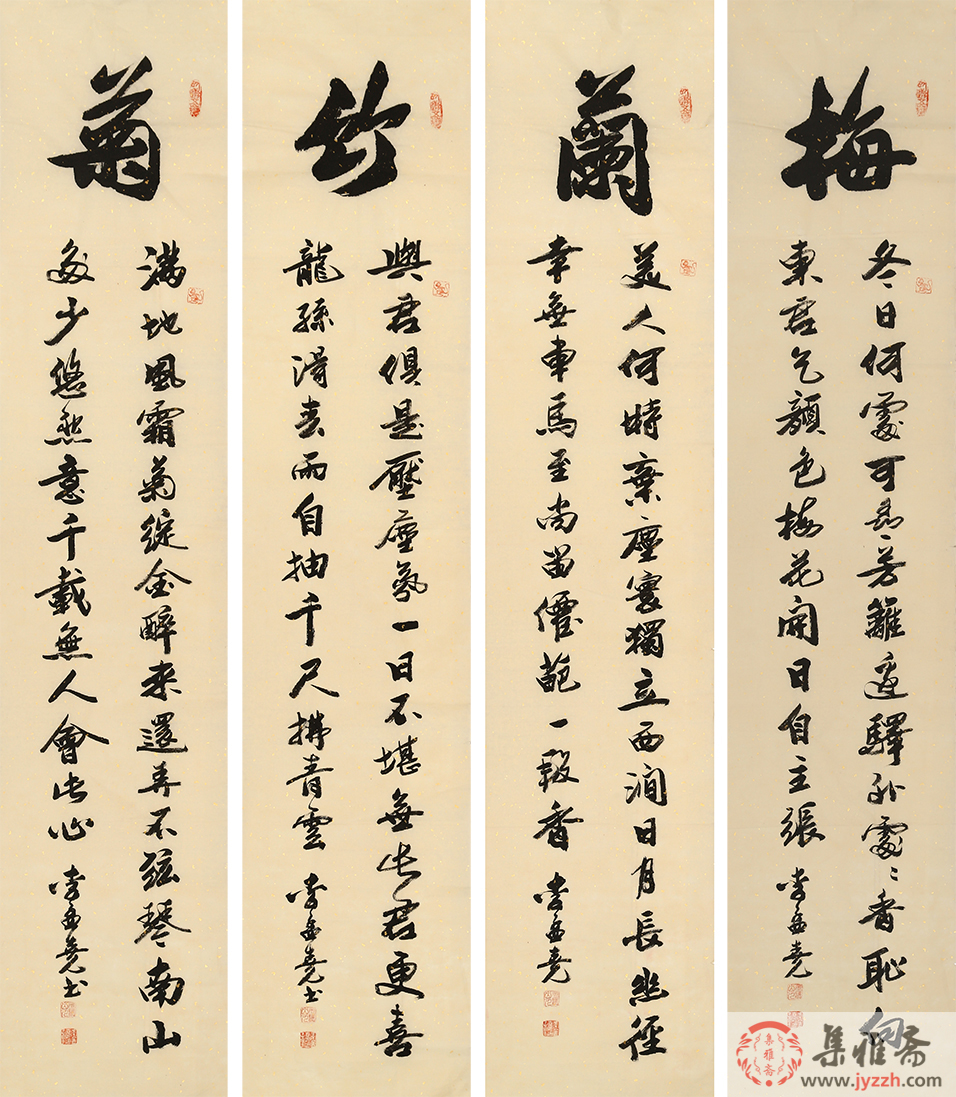 梅
冬日何處可尋芳籬邊驛外處々香恥向
東君乞顏色梅花開日自主張 李孟堯
蘭
美人何時棄塵寰獨立西澗日月長幽徑
幸無車馬至尚留僊葩一段香 李孟堯
竹
與君俱是壓塵氛一日不堪無此君更喜
龍孫得春雨自抽千尺拂青雲 李孟堯书
菊
滿地風霜菊綻金醉來還弄不弦琴南山
多少悠然意千載無人會此心 李孟堯书
集雅斋
www.jyzzh.com